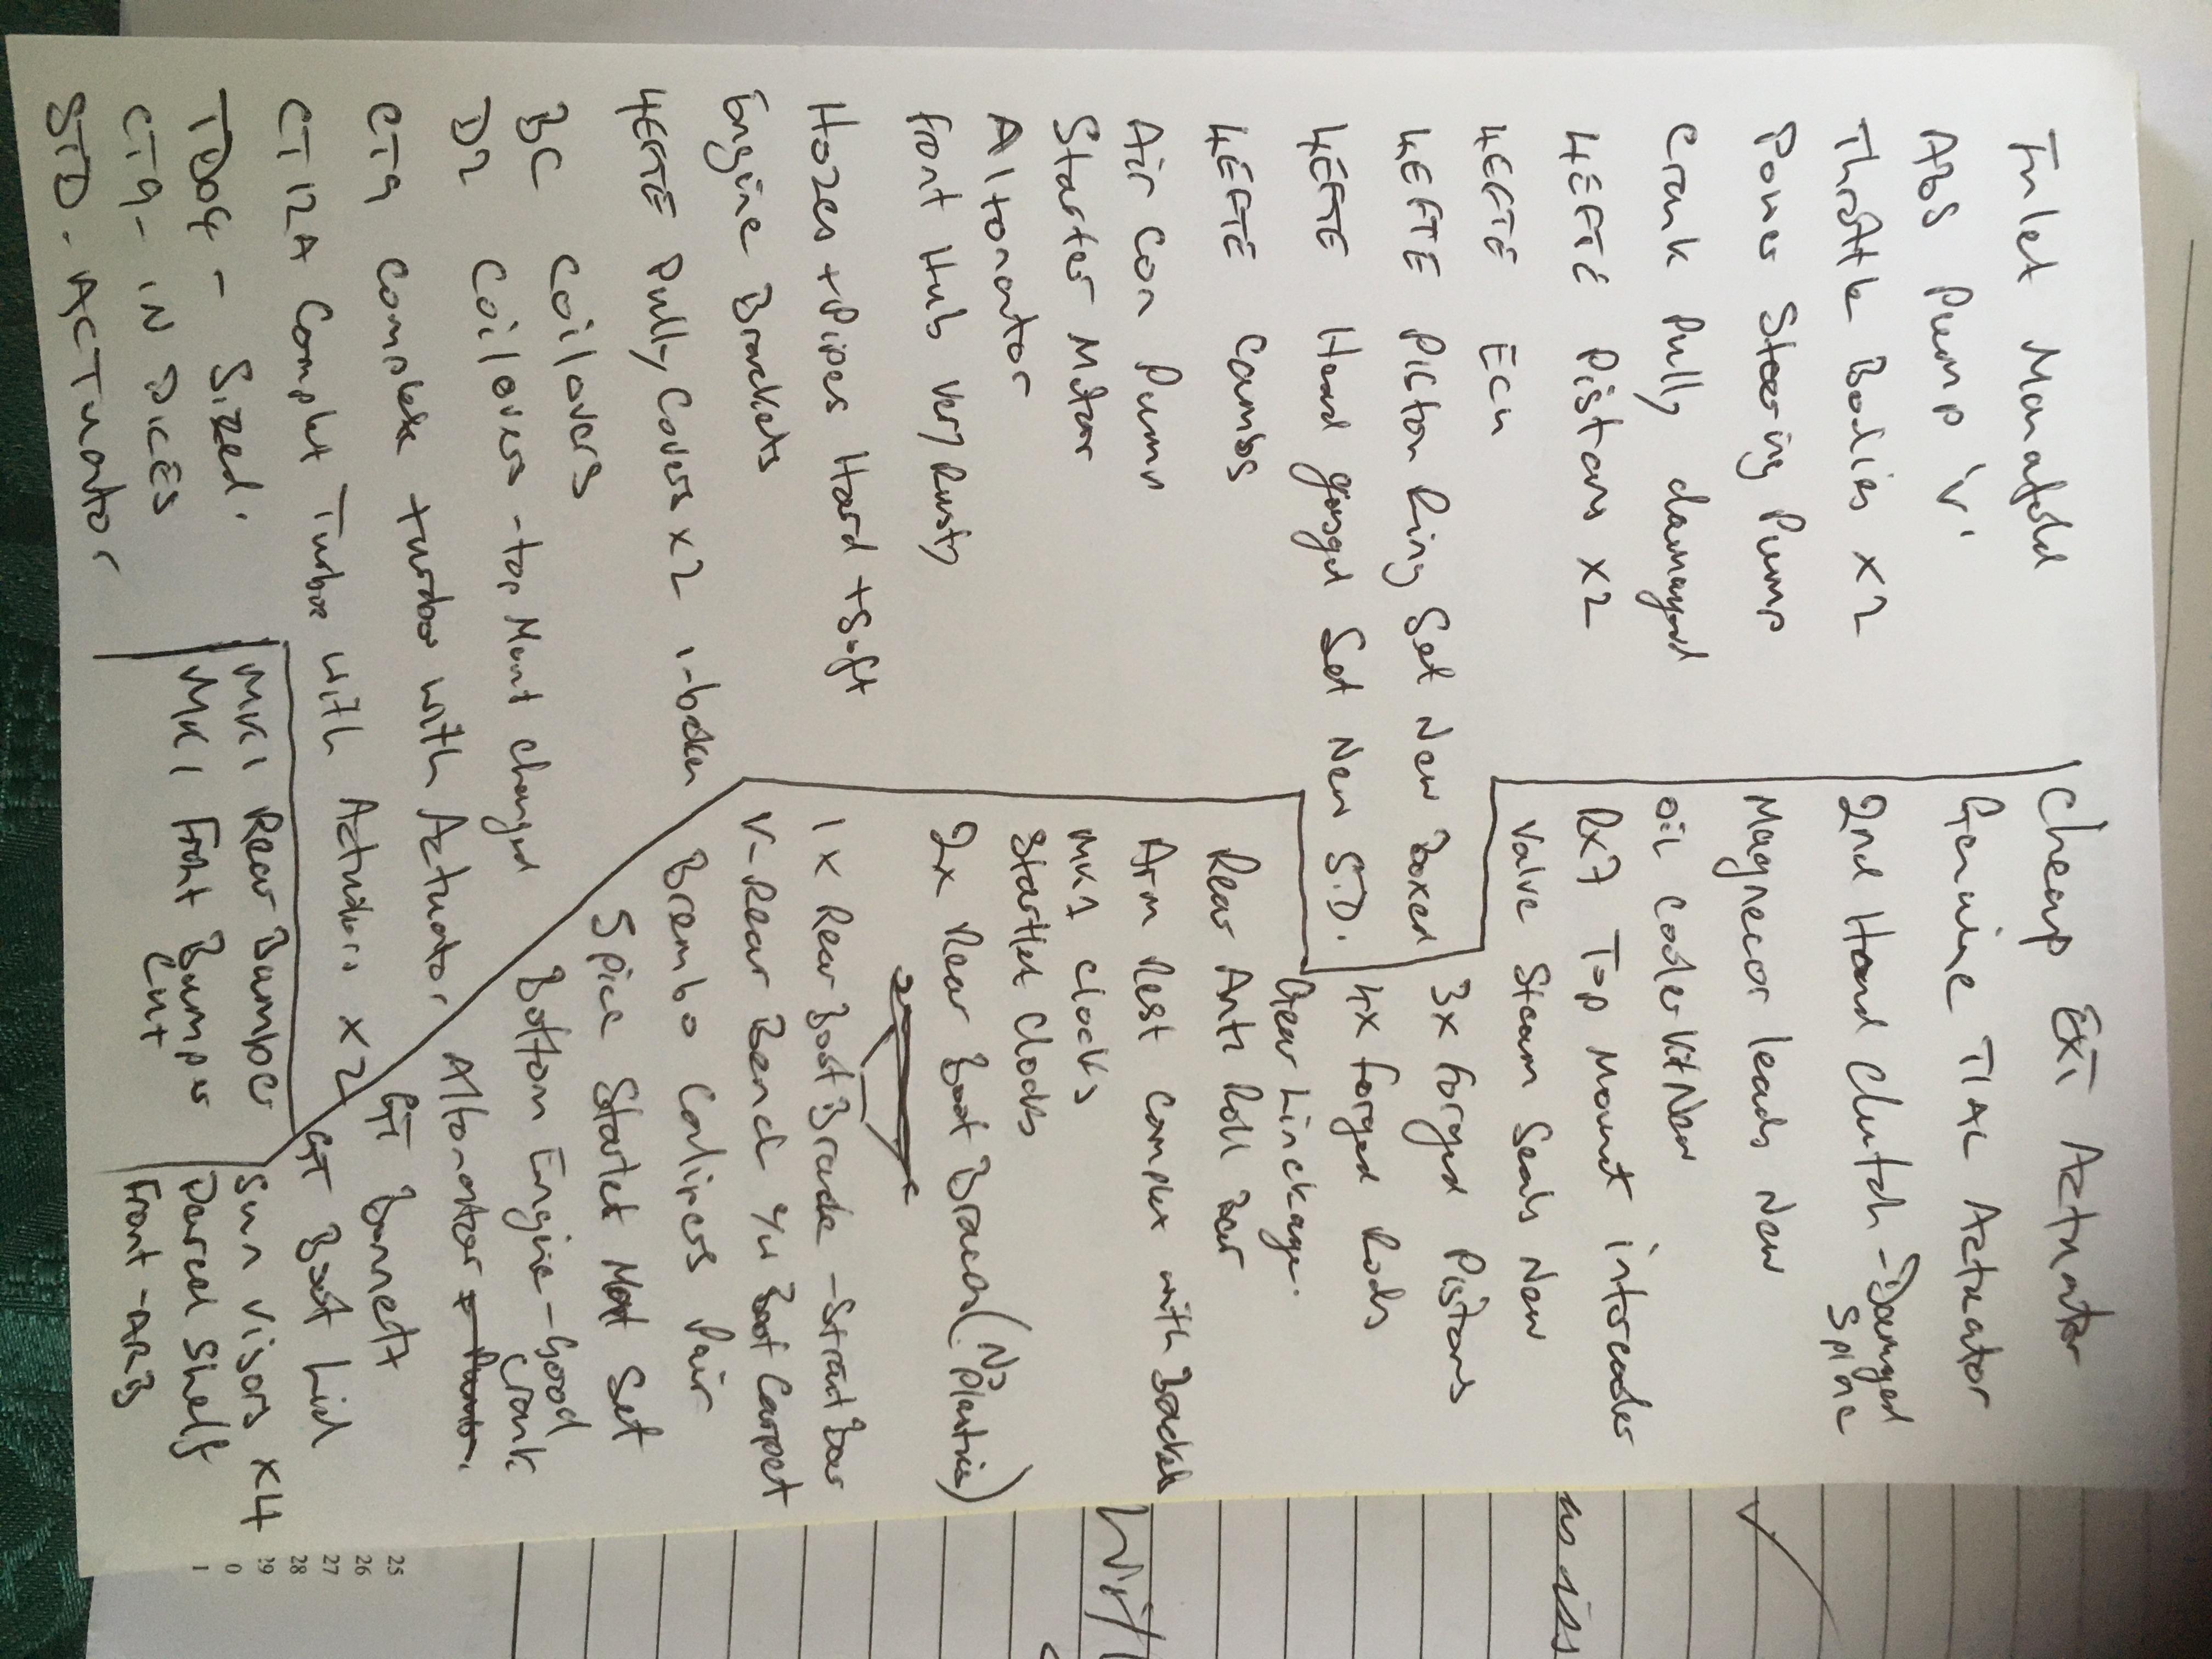 Inlet Manafold
ABS Pump 'V'
Throttle Bodies x2
Power Steering Pump
Crank Pully damaged
4EFTE Pistons x2
4EFTE Ecu
4EFTE Piston Ring Set New Boxed
4EFTE Head gasget Set New S.D.
4EFTE Cambs
Air Con Pump
Starter Motor
Altonator
front Hub very Rusty
Hozes + Pipes Hard + Soft
Engine Brackets
4EFTE Pully Covers x2 1-broken
BC Coilovers
D2 Coilovers - top Mont changed
CT9 Complete turbo with Actuator
CT12A Complet Turbo with Actudors x2
TD04 - Sized.
CT9 - IN PICES
STD. ACTuator
MK1 Rear Bumper
MK1 Front Bumper
Cut
Cheap EXT Actuator
Genuine TIAL Actuator
2nd Hand Clutch - Damged
Spline
Magnecor leads New
oil cooler kit New
Rx7 Top Mount intercooler
Valve Steam Seals New
3x forged Pistons
4x forged Rods
Gear Linckage.
Rear Anti Roll Bar
Arm Rest Complet with Bracket
MK1 Clocks
Starlet Clocks
2x Rear Boot Braces (No Plastics)
1x Rear Boot Brade - Strait bar
V-Rear Bend 4u Boot Carpet
Brembo Calipers Pair
Spice Starlet Mat Set
Bottom Engine - Good
Crank
Altonator
GT Bonnett
GT Boot Lid
Sun Visors x4
Parcel Shelf
Front - ARB
as is
25
26
27
28
29
0
1